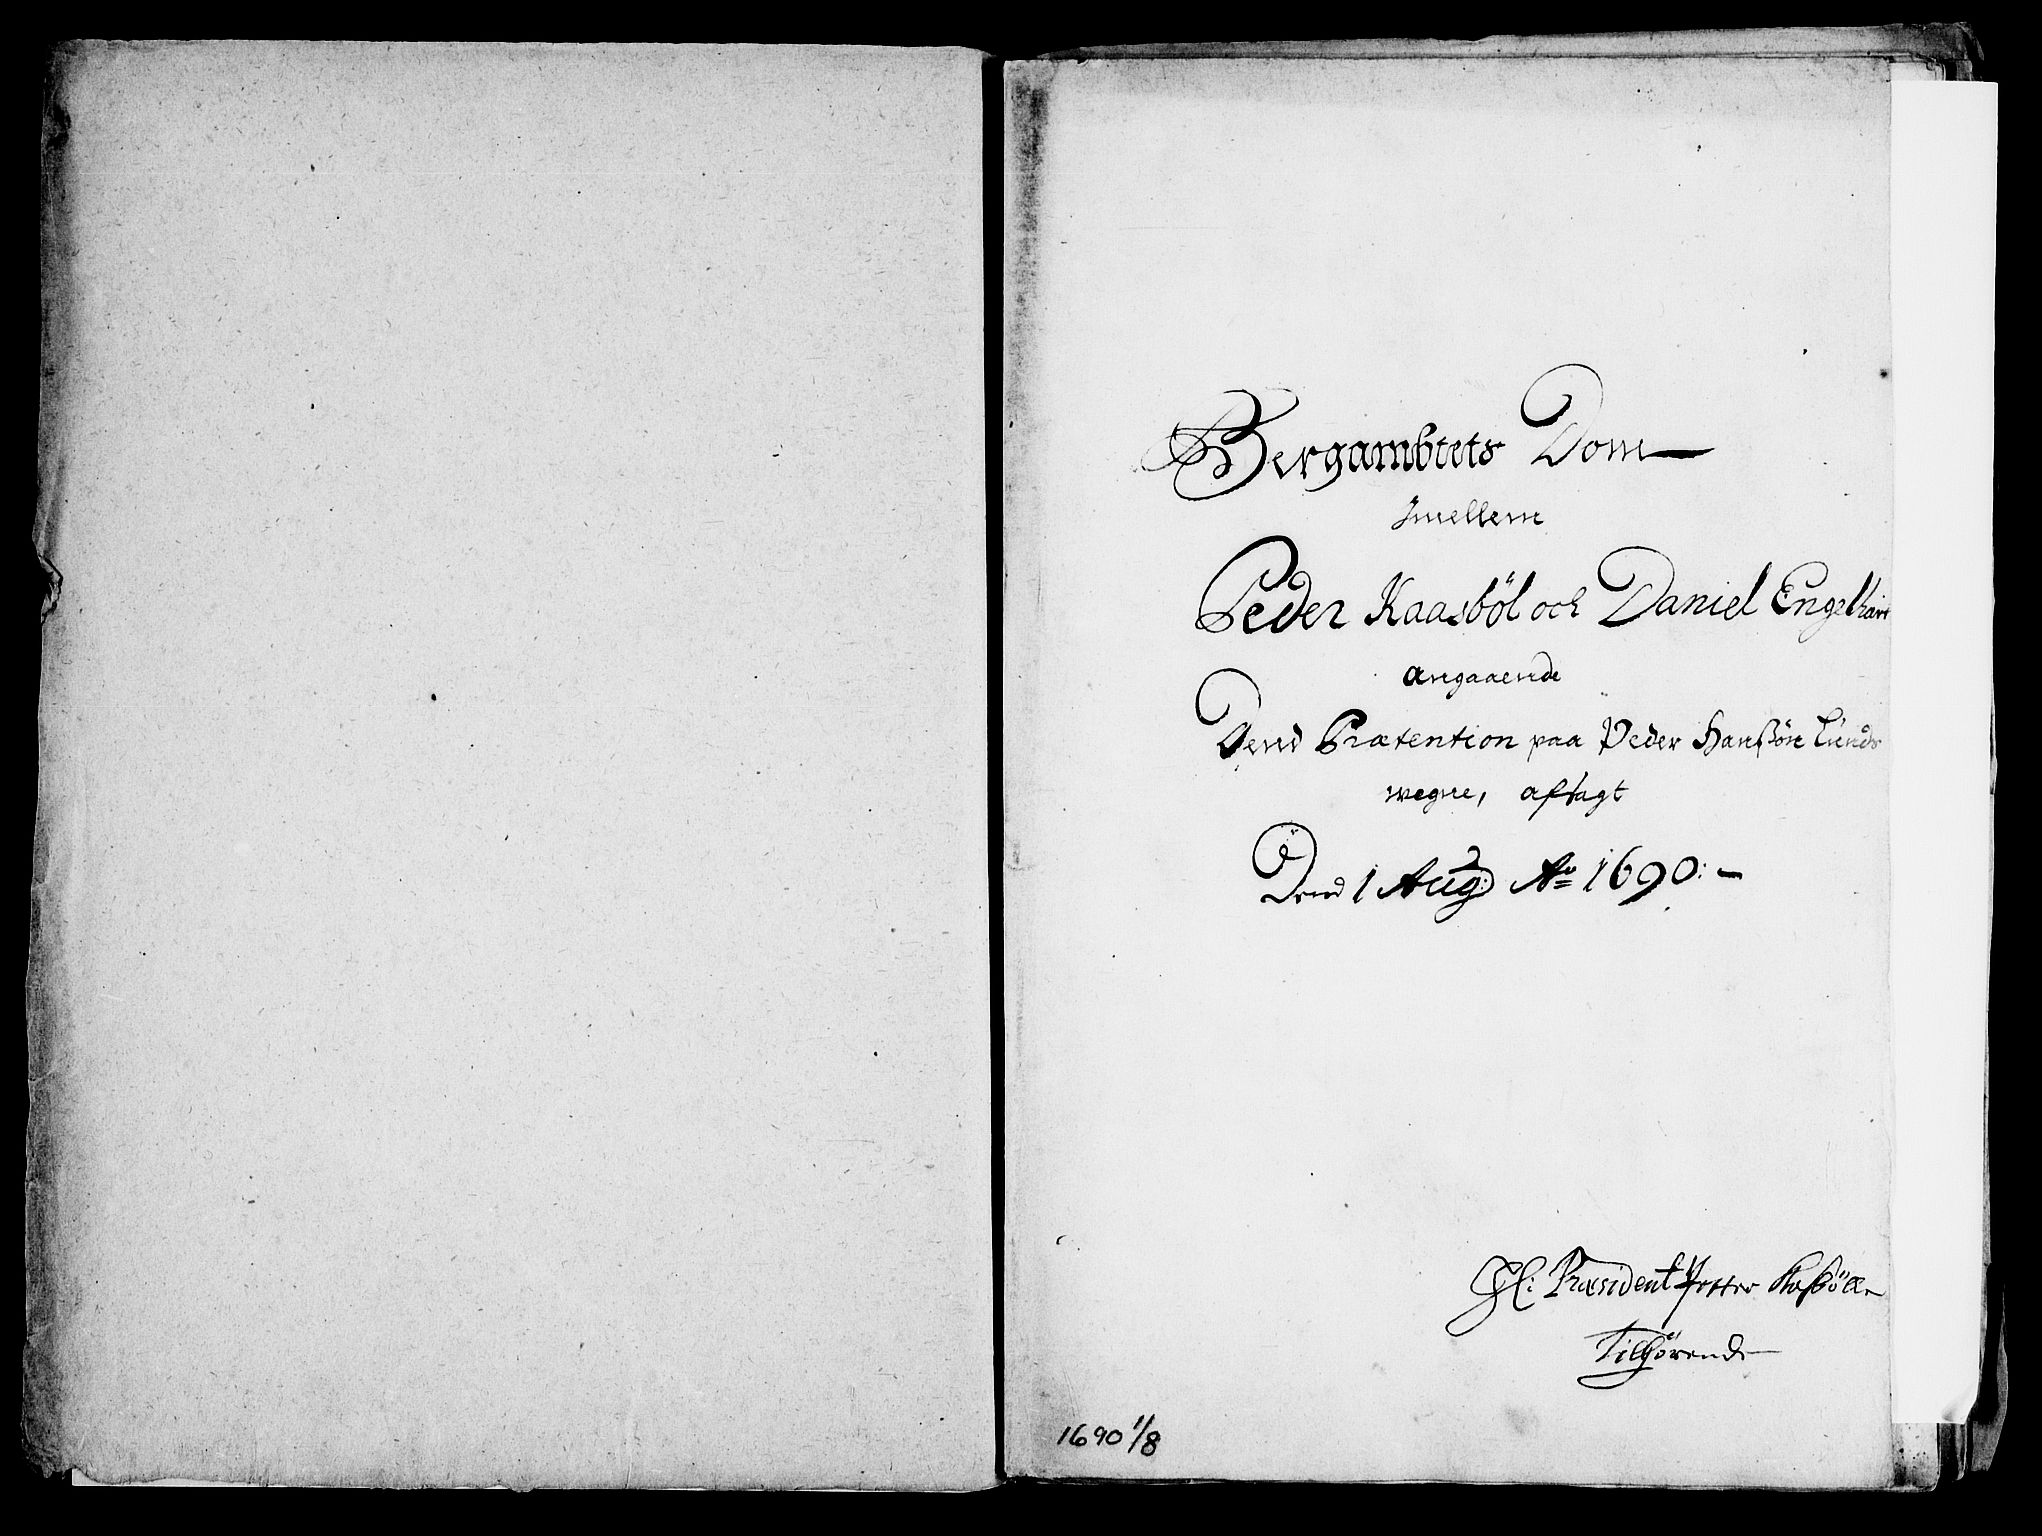 Bergambtets Dom
Imellem
Peder Kaasböl och Daniel Engelhart
angaaende
Dend Prætention paa Peder Hanßön Lunds
wegne, afsagt
Dend 1 Aug: Ao 1690:
Hl: Præsident Petter Kaßböll
Tilhörende
1690 1/8